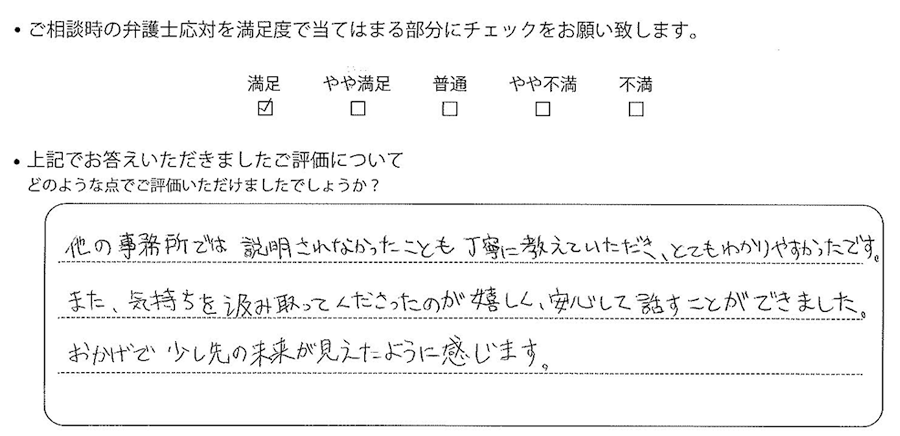 ・ご相談時の弁護士応対を満足度で当てはまる部分にチェックをお願い致します。
満足 やや満足 普通 やや不満 不満
☑ ☐ ☐ ☐ ☐
・上記でお答えいただきましたご評価について
どのような点でご評価いただけましたでしょうか？
他の事務所では説明されなかったことも丁寧に教えていただき、とてもわかりやすかったです。
また、気持ちを汲み取ってくださったのが嬉しく、安心して話すことができました。
おかげで少し先の未来が見えたように感じます。